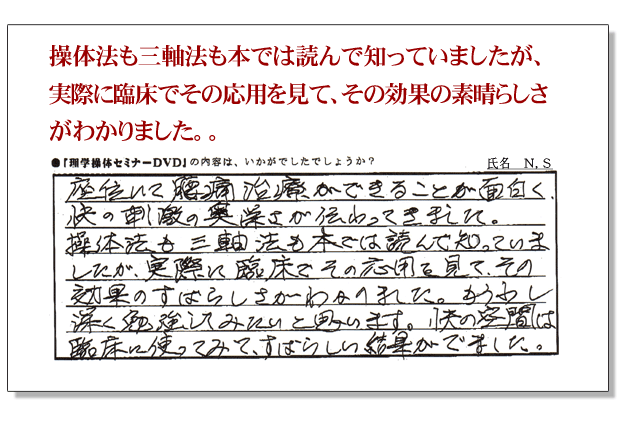 操体法も三軸法も本では読んで知っていましたが、
実際に臨床でその応用を見て、その効果の素晴らしさ
がわかりました。。
●『理学操体セミナーDVD』の内容は、いかがでしたでしょうか？ 氏名 N, S
座位にて腰痛治療ができることが面白く、
快の刺激の奥深さが伝わってきました。
操体法も三軸法も本では読んで知っていま
したが、実際に臨床でその応用を見て、その
効果のすばらしさがわかりました。もう少し
深く勉強してみたいと思います。快の空間は
臨床に使ってみて、すばらしい結果がでました。